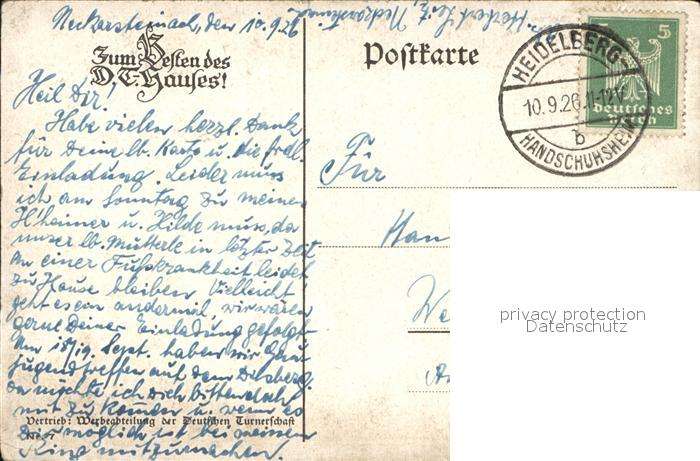 Neckarsteinach, den 10.9.26
Zum Besten des
D. T. Hauses!
Heil Dir!
Habe vielen herzl. Dank
für Deine lb. Karte u. die frdl.
Einladung. Leider muss
ich am Sonntag zu meinen
H'heimer u. Hilde muss, da
unser lb. Mutterle in letzter Zeit
an einer Fußkrankheit leidet
zu Hause bleiben. Vielleicht
geht es ein andermal, wir wären
gerne Deiner Einladung gefolgt.
Am 18/19. Sept. haben wir Gau
jugendtreffen auf dem Dilsberg.
da möchte ich Dich bitten doch
mit zu kommen u. wenn es
Dir möglich ist bei meinem
Ring mitzumachen.
Vertrieb: Werbeabteilung der Deutschen Turnerschaft
No. 7
Herbert Seitz, Neckarsteinach
Postkarte
5 5
deutsches
Reich
HEIDELBERG-
10.9.26.11-12V
b
HANDSCHUHSHEIM
Für
privacy protection
Datenschutz